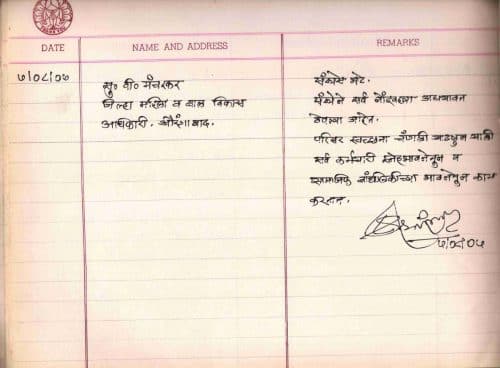 DATE
NAME AND ADDRESS
REMARKS
७/०८/०७
सु० वी० मंचरकर
जिल्हा महिला व बाल विकास
अधिकारी. औरंगाबाद.
संस्थेस भेट.
संस्थेने सर्व नोंदवह्या अद्ययावत
ठेवल्या आहेत.
परिसर स्वच्छता चांगली
सर्व कर्मचारी स्नेहभावनेतून व
सामाजिक बांधिलकीच्या भावनेतून काम
करतात.
७/०८/०७